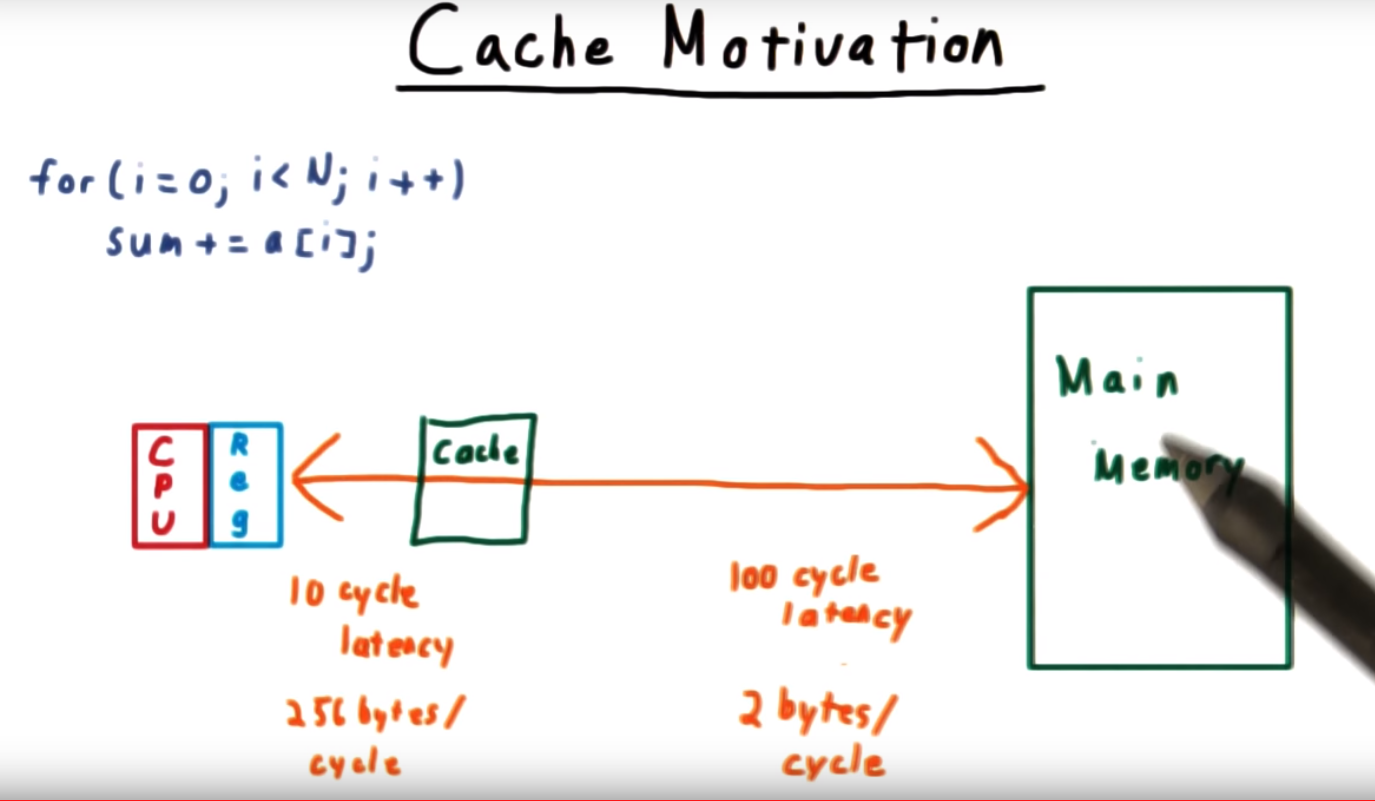 Cache Motivation
for(i=0; i<N; i++)
sum += a[i];
CPU
Reg
Cache
Main
Memory
10 cycle
latency
256 bytes/
cycle
100 cycle
latency
2 bytes/
cycle